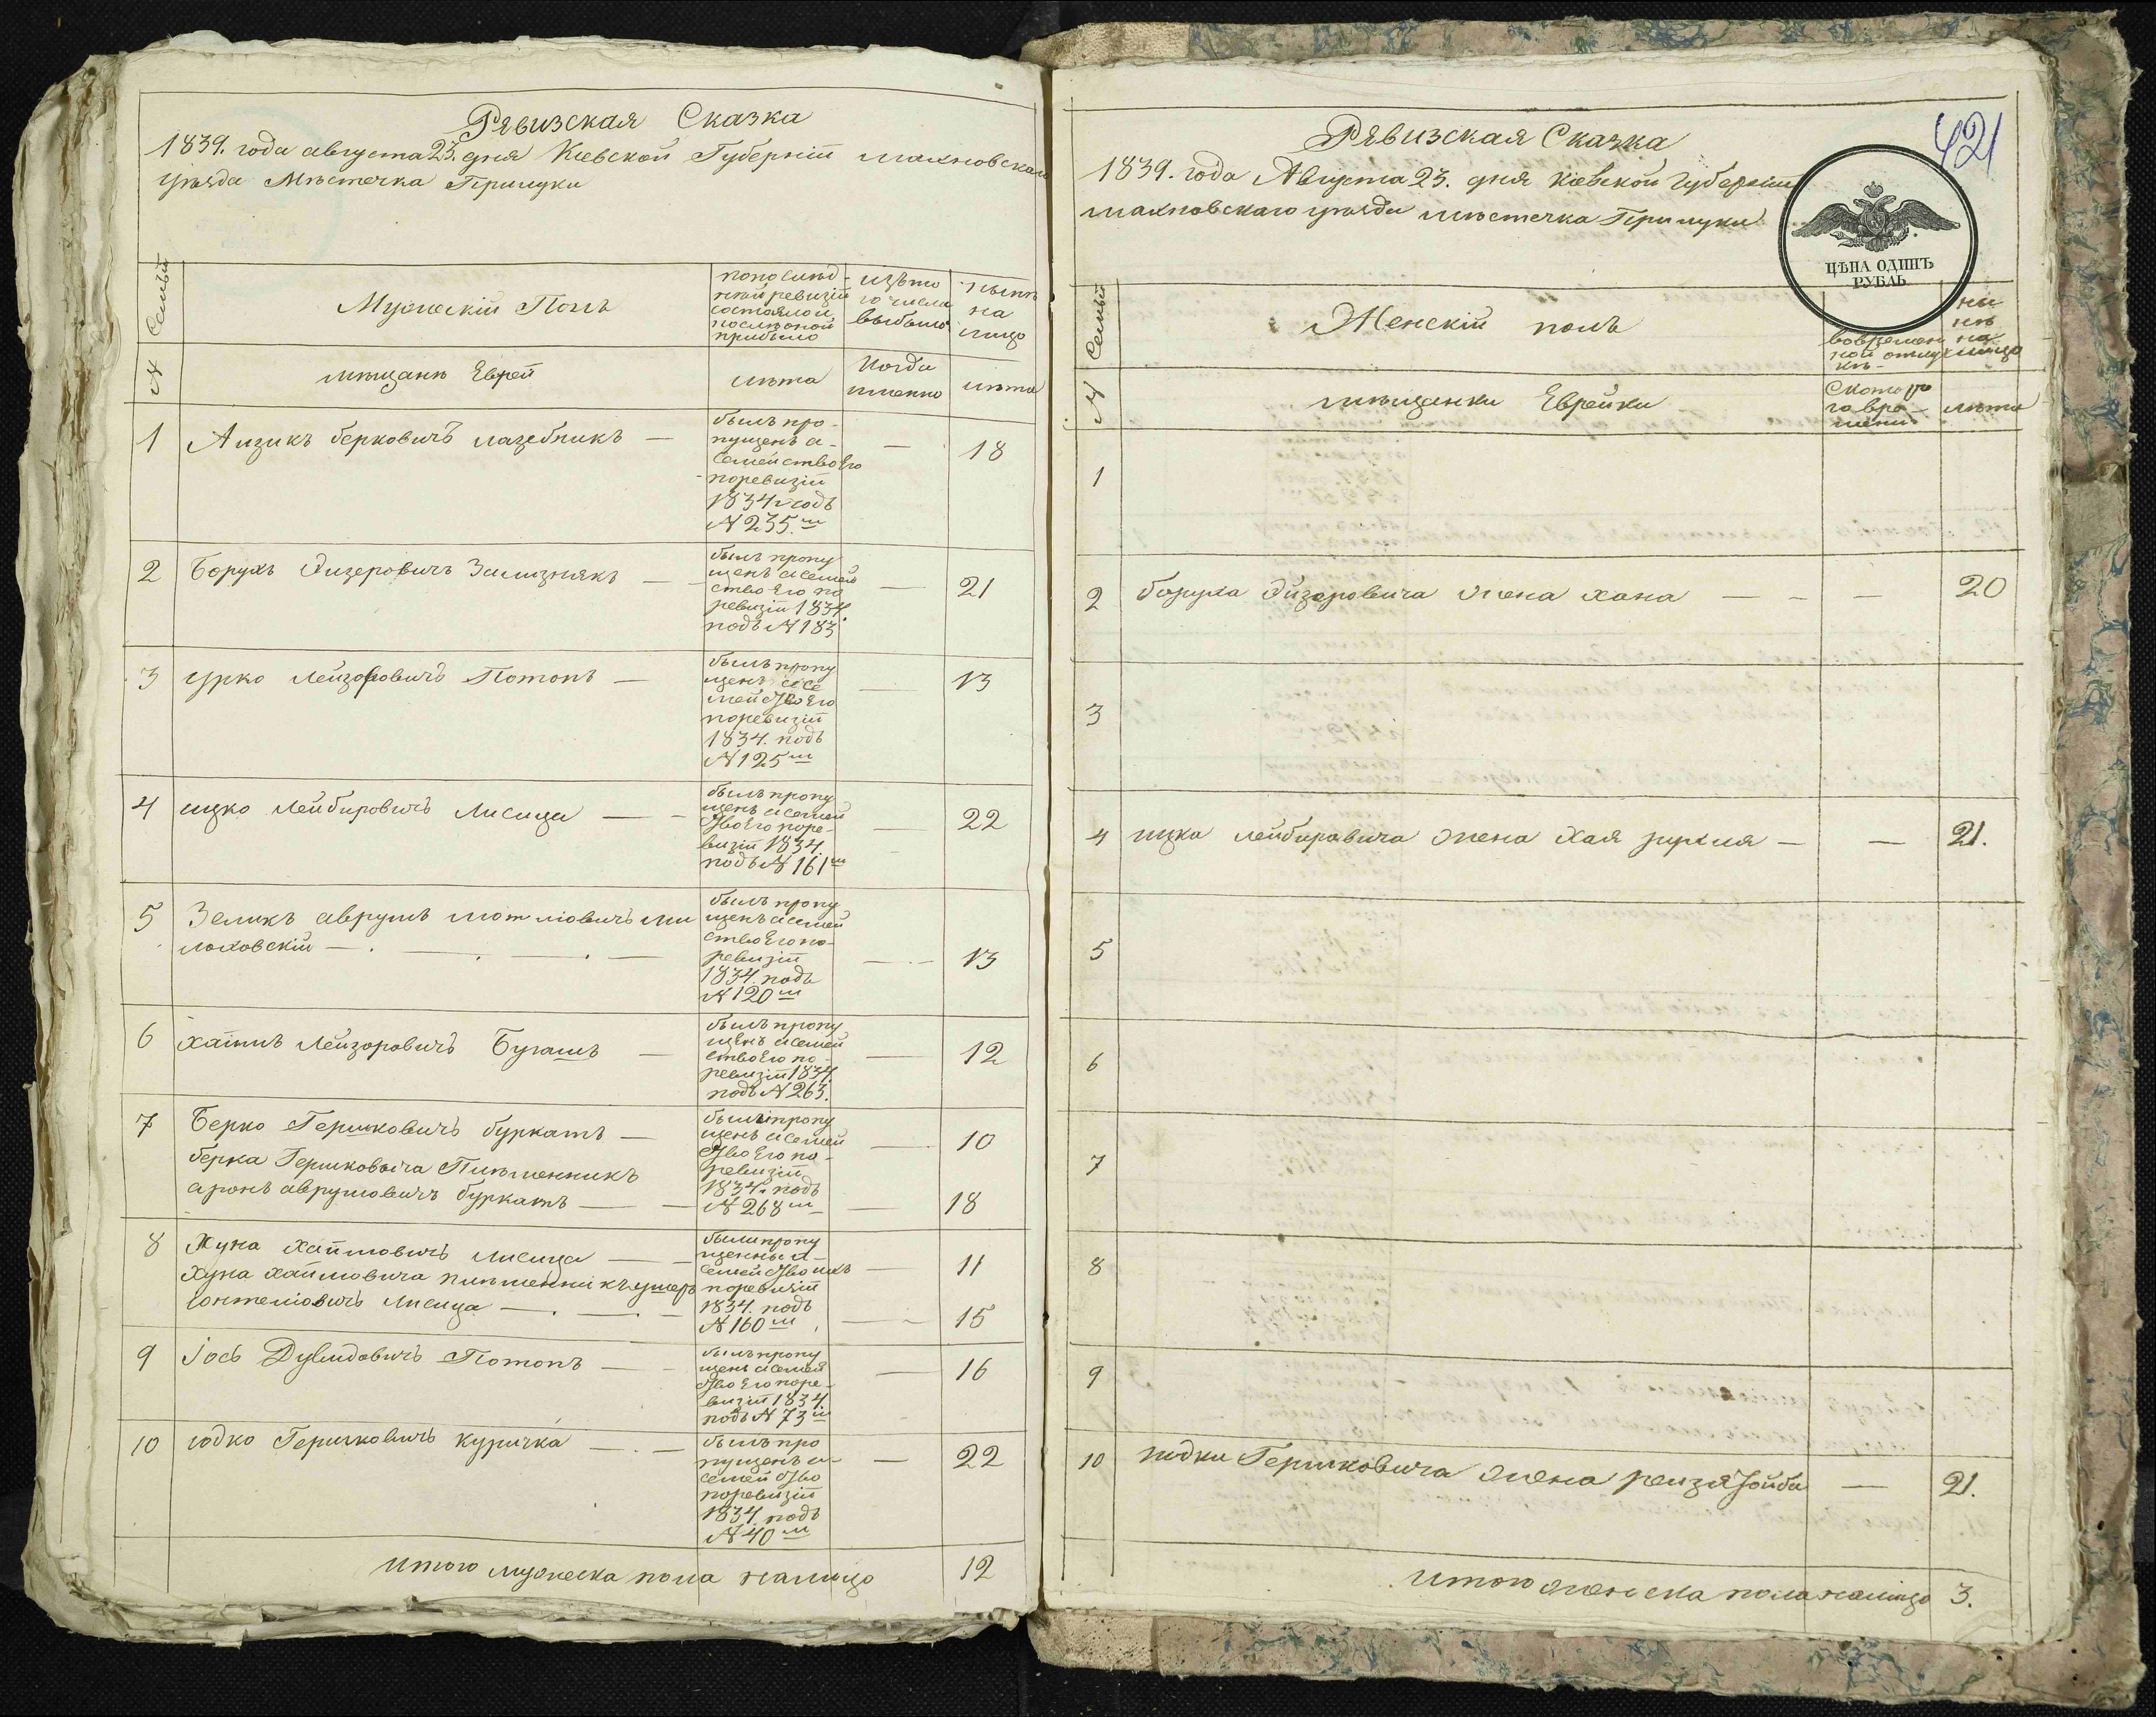 Рявизская Сказка
1839. года августа 23. дня Кіевской Губерніи махновскаго
уъзда Мъстечка Прилуки
№ Семьи
Мужескій Полъ
попослъд-
ней ревизіи
состояло и
послъ оной
прибыло
изъто
го числа
выбыло
нынъ
на
лицо
мъщанъ Еврей
лъта
Когда
именно
лъта
1 Аизикъ берковичъ лазебникъ — — 18
былъ про-
пущенъ а-
семейство Его
поревизіи
1834 подъ
№ 235.м
2 Борухъ Эизеровичъ Зализнякъ — — 21
былъ пропу
щенъ а семей
ство Его по
ревизіи 1834.
подъ № 183
3 Урко Лейзоровичъ Потопъ — — 13
былъ пропу
щенъ а се
мейство Его
поревизіи
1834. подъ
№ 125 м
4 ицко Лейбировичъ Лисица — — 22
былъ пропу
щенъ а семей
ство Его поре-
визіи 1834.
подъ № 161 м
5 Зеликъ аврумъ мотліовичъ ми
лоховскій — . — . — . — — 13
былъ пропу
щенъ а семей
ство Его по-
ревизіи
1834. подъ
№ 120 м
6 хаимъ Лейзоровичъ Бугашъ — — 12
былъ пропу
щенъ а семей
ство Его по-
ревизіи 1834.
подъ № 263.
7 Берко Гершковичъ буркатъ — — 10
берка Гершковича Племенникъ
аронъ аврумовичъ буркатъ — — 18
былъ пропу
щенъ а семей
ство Его по-
ревизіи
1834. подъ
№ 268 м
8 Хуна хаимовичъ лисица — — 11
Хуна хаимовича племенникъ ушеръ
іонтеліовичъ Лисица — . — . — — 15
были пропу
щенны а-
семейство ихъ
поревизіи
1834. подъ
№ 160 м
9 Іось Дувидовичъ Потопъ — — 16
былъ пропу
щенъ а семей
ство Его поре-
визіи 1834.
подъ № 73 м
10 юдко Гершковичъ куричка — . — — 22
былъ про
пущенъ а-
семейство
поревизіи
1834. подъ
№ 40 м
Итого мужеска пола налицо 12
421
Рявизская Сказка
1839. года Августа 23. дня кіевской Губерніи
махновскаго уъзда мъстечка Прилуки
ЦѢНА ОДИНЪ
РУБЛЬ
№ Семьи
Женскій полъ
вовремен
ной отлуч
къ-
ны
нъ
на
лицо
мъщанки Еврейки
Скотора
го вре-
мени
лъта
1
2 боруха Эйзеровича жена хана — - — 20
3
4 ицка лейбировича жена Хая рухля — — 21.
5
6
7
8
9
10 юдки Гершковича жена реизя тойба — 21.
Итого женска пола налицо 3.